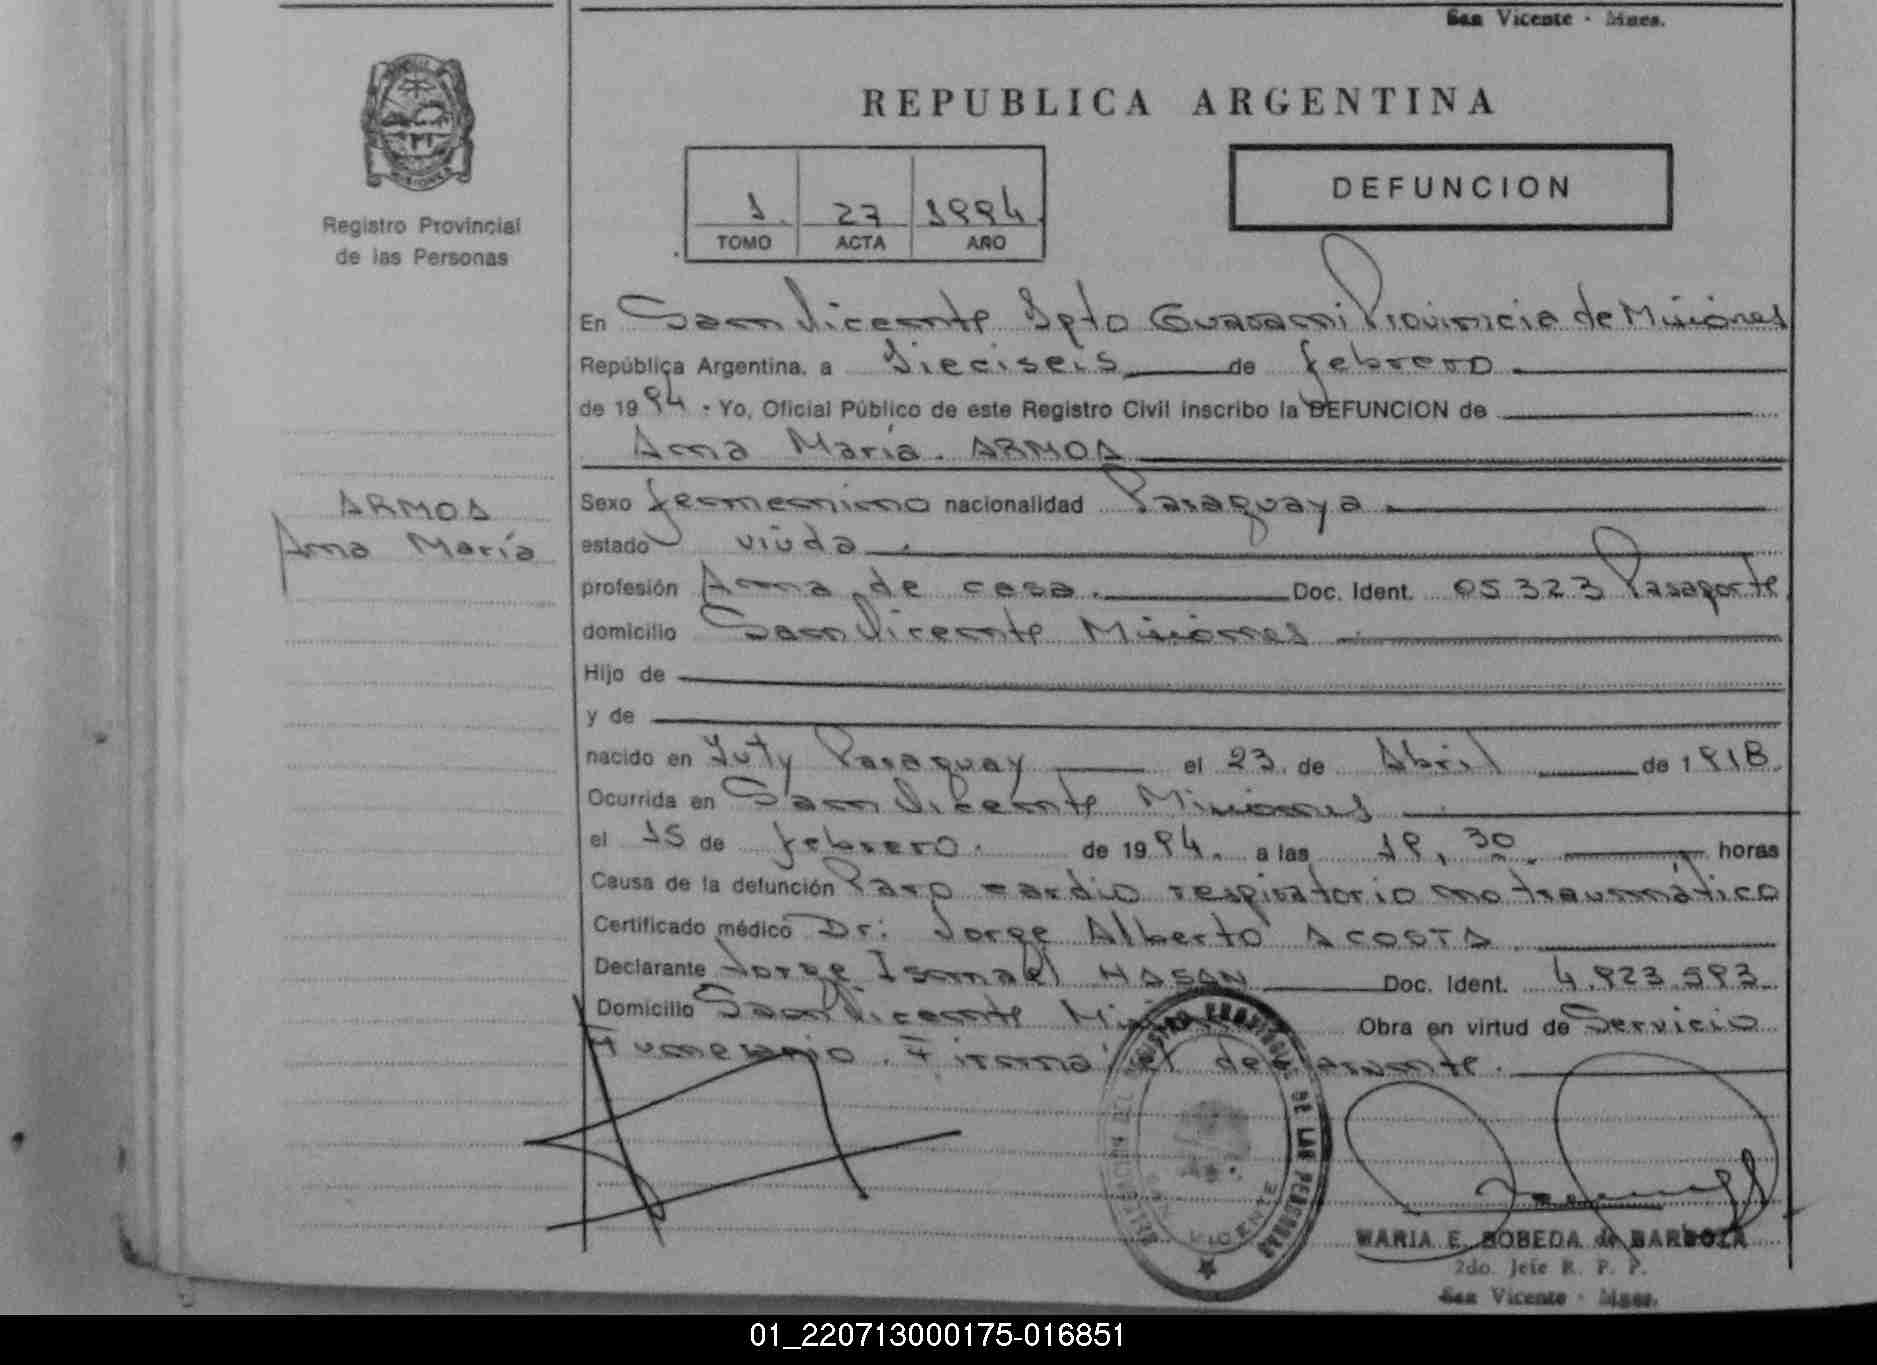 San Vicente - Mnes.
REPUBLICA ARGENTINA
DEFUNCION
1. 27 1994.
TOMO ACTA AÑO
MISIONES
Registro Provincial
de las Personas
En San Vicente Dpto Guarani Provincia de Misiones
República Argentina, a Dieciseis de febrero
de 1994 . Yo, Oficial Público de este Registro Civil inscribo la DEFUNCION de
Ana María. ARMOA
ARMOA
Ana María
Sexo femenino nacionalidad Paraguaya
estado viuda
profesión Ama de casa. Doc. Ident. 05323 Pasaporte
domicilio San Vicente Misiones
Hijo de
y de
nacido en Yuty Paraguay el 23. de Abril de 1918.
Ocurrida en San Vicente Misiones
el 15 de febrero. de 1994. a las 19,30. horas
Causa de la defunción Paro cardio respiratorio no traumático
Certificado médico Dr: Jorge Alberto ACOSTA
Declarante Jorge Ismael HASAN Doc. Ident. 4.923.593.
Domicilio San Vicente Obra en virtud de Servicio
Funerario. Firma el declarante.
DELEGACION DEL REGISTRO PROVINCIAL DE LAS PERSONAS
SAN VICENTE
MARIA E. BOBEDA de BARBOZA
2do. Jefe R. P. P.
San Vicente - Mnes.
01_220713000175-016851